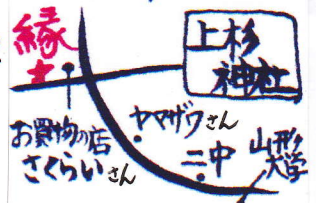 縁土
上杉
神社
お買物の店
さくらいさん
ヤマザワさん
二中
山形
大学